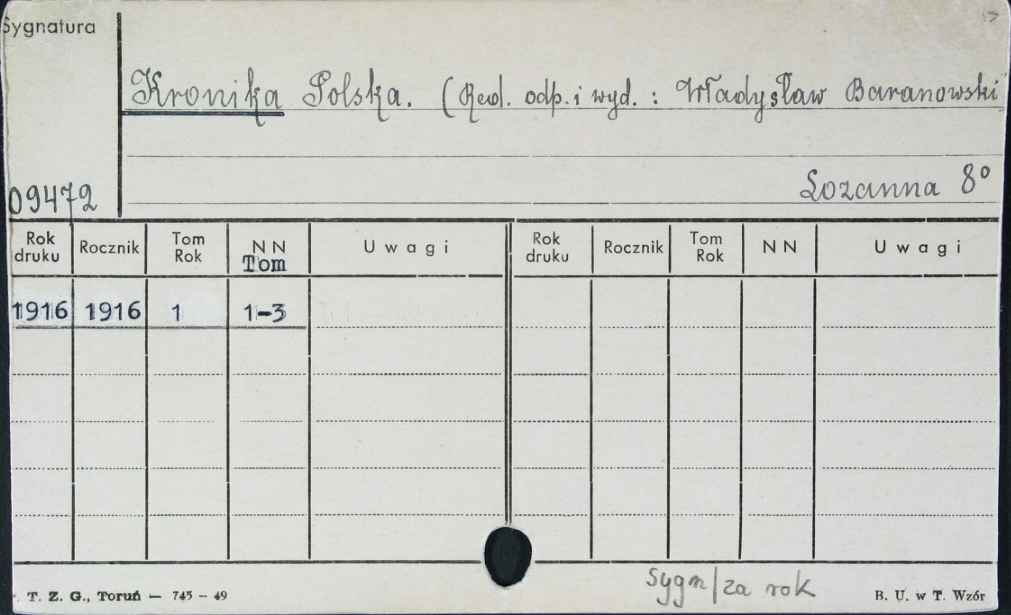 Sygnatura
Kronika Polska. (Red. odp. i wyd. : Władysław Baranowski
Lozanna 8°
09472
Rok druku Rocznik Tom Rok NN Tom Uwagi Rok druku Rocznik Tom Rok NN Uwagi
1916 1916 1 1-3
sygn/za rok
T. Z. G., Toruń — 745 – 49 B. U. w T. Wzór